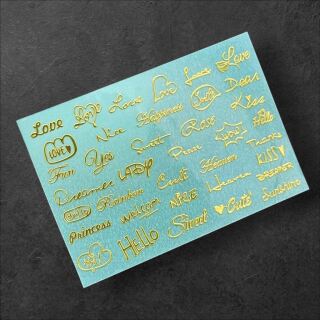 Love Love Love Love Loves Love
Nice Happiness Smile Dear
LOVE Sweet Rose Kiss
Fun Yes Hello
Dreamer LADY Thanks
Hello Rainbow Cute Heaven KISS
Princess welcome NICE Heaven DREAMER
Hello Sweet Cute Sunshine